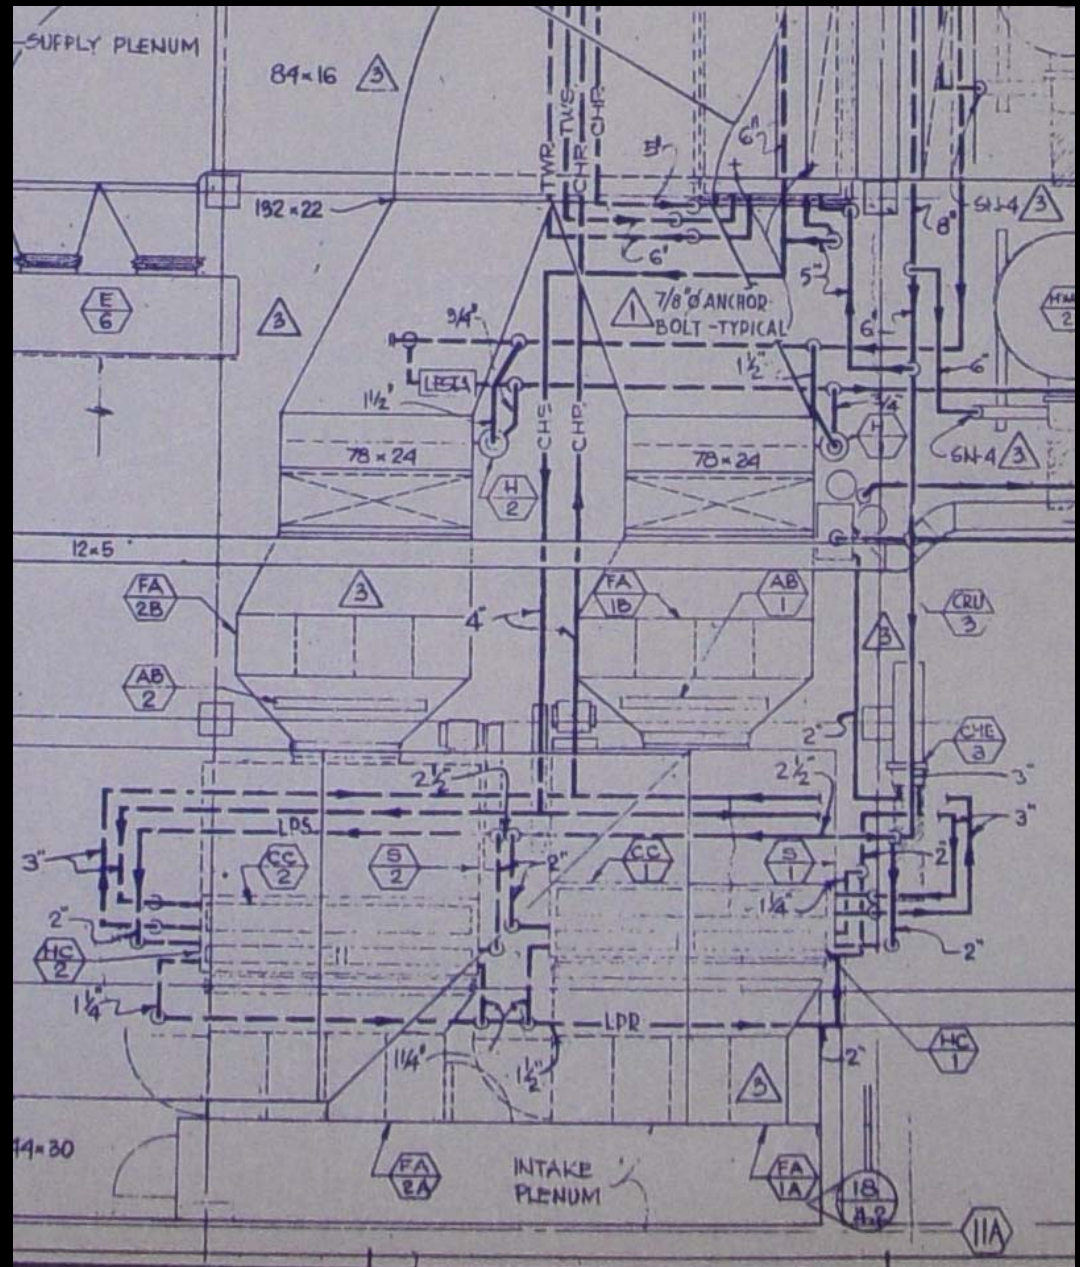 SUPPLY PLENUM
84×16
3
TWR
TWS
CHR
CHR
6"
SN-4
3
192×22
8"
6"
5"
E
6
3
1
7/8"Ø ANCHOR
BOLT-TYPICAL
HW
2
3/4"
6"
1½"
6"
1½"
CHS
CHR
3/4"
H
1
SN-4
3
78×24
78×24
H
2
12×5
FA
2B
3
FA
1B
AB
1
CRU
3
4"
3
AB
2
2"
2½"
2½"
3"
LPS
3"
3"
CC
2
S
2
2"
CC
1
S
1
2"
1¼"
2"
HC
2
2"
1¼"
LPR
1¼"
1½"
2"
HC
1
3
44×30
FA
2A
INTAKE
PLENUM
FA
1A
18
11A